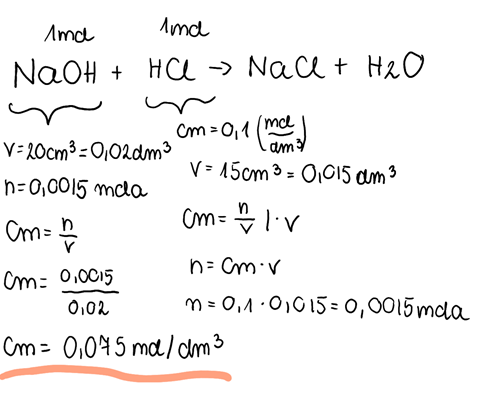 1mol 1mol
NaOH + HCl → NaCl + H2O
V=20cm³=0,02dm³
n=0,0015 mola
Cm = n/v
Cm = 0,0015/0,02
Cm = 0,075 mol/dm³
Cm=0,1 (mol/dm³)
V=15cm³=0,015dm³
Cm= n/v |·v
n=Cm·v
n=0,1·0,015=0,0015mola